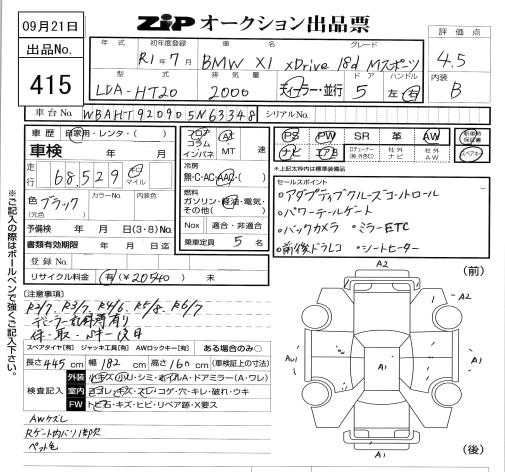 09月21日
ZIP オークション出品票
出品No.
415
年式 初年度登録 車名 グレード
R1年7月 BMW X1 xDrive 18d Mスポーツ
型式 排気量 ドア ハンドル
LDA-HT20 2000 ディーラー・並行 5 左・右
評価点
4.5
内装
B
車台No. WBAHT920905N63348 シリアルNo.
車歴 自家用・レンタ・( )
車検 年 月
走行 68,529 キロ マイル
色 ブラック カラーNo. 内装色
(元色)
予備検 年 月 日(3・8)No.
書類有効期限 年 月 日迄
登録No.
リサイクル料金 有(¥20540) 未
フロア コラム インパネ AT MT 速
冷房
無・C・AC・AAC・( )
燃料
ガソリン・軽油・電気・その他( )
Nox 適合・非適合
乗車定員 5 名
PS PW SR 革 AW
ナビ エアB TVチューナー(純・外含む) 社外ナビ 社外AW
新車時保証書
スペアキー
*上記太枠内は装備のみ
セールスポイント
・アダプティブクルーズコントロール
・パワーテールゲート
・バックカメラ ・ミラーETC
・前後ドラレコ ・シートヒーター
※ご記入の際はボールペンで強くご記入下さい。
[注意事項]
R2/7. R3/7. R4/6. R5/8. R6/7
ディーラー記録簿有り
保・取・SK 後日
スペアタイヤ[有] ジャッキ工具[有] AWロックキー[有] ある場合のみ○
長さ 445 cm 幅 182 cm 高さ 160 cm (車検証上の寸法)
検査記入
外装 ヒズミ・小U・シミ・ホイルA・ドアミラー(A・ワレ)
室内 ヨゴレ・キズ・スレ・コゲ・穴・キレ・破れ・ウキ
FW トビ石・キズ・ヒビ・リペア跡・X要ス
AWケズレ
Rゲート内バリ1部欠
ペット色
(前)
A2
A2
AU1
A1
A1
A1
(後)